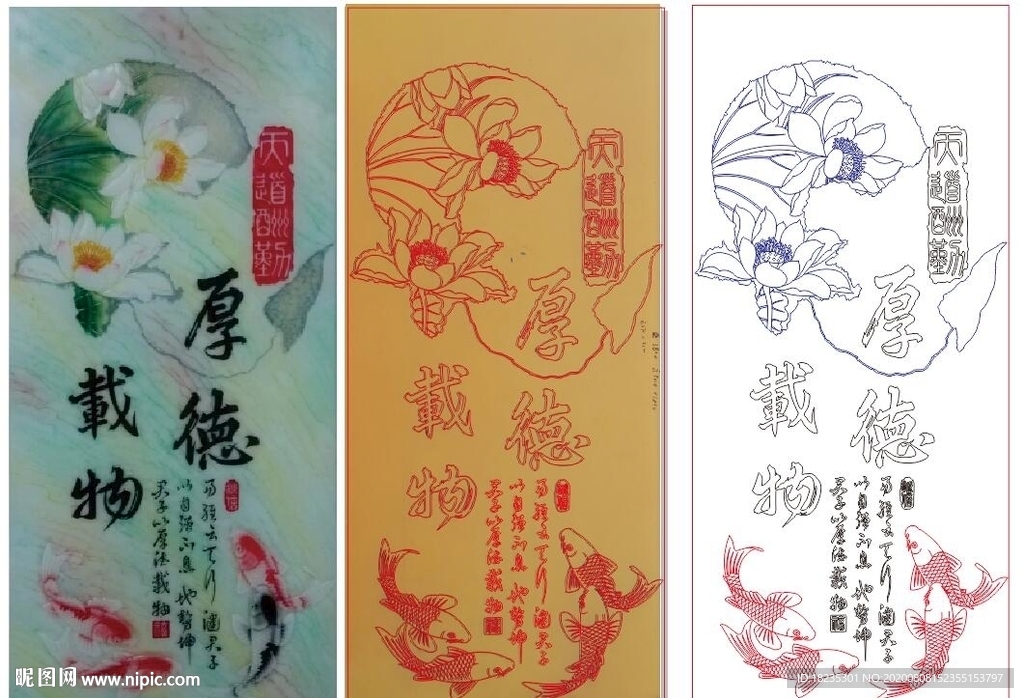 天道酬勤
厚德
載物
易經云天行健君子
以自強不息地勢坤
君子以厚德載物
天道酬勤
厚德
載物
易經云天行健君子
以自強不息地勢坤
君子以厚德載物
天道酬勤
厚德
載物
易經云天行健君子
以自強不息地勢坤
君子以厚德載物
昵图网 www.nipic.com
ID:18235301 NO:20200608152355153797